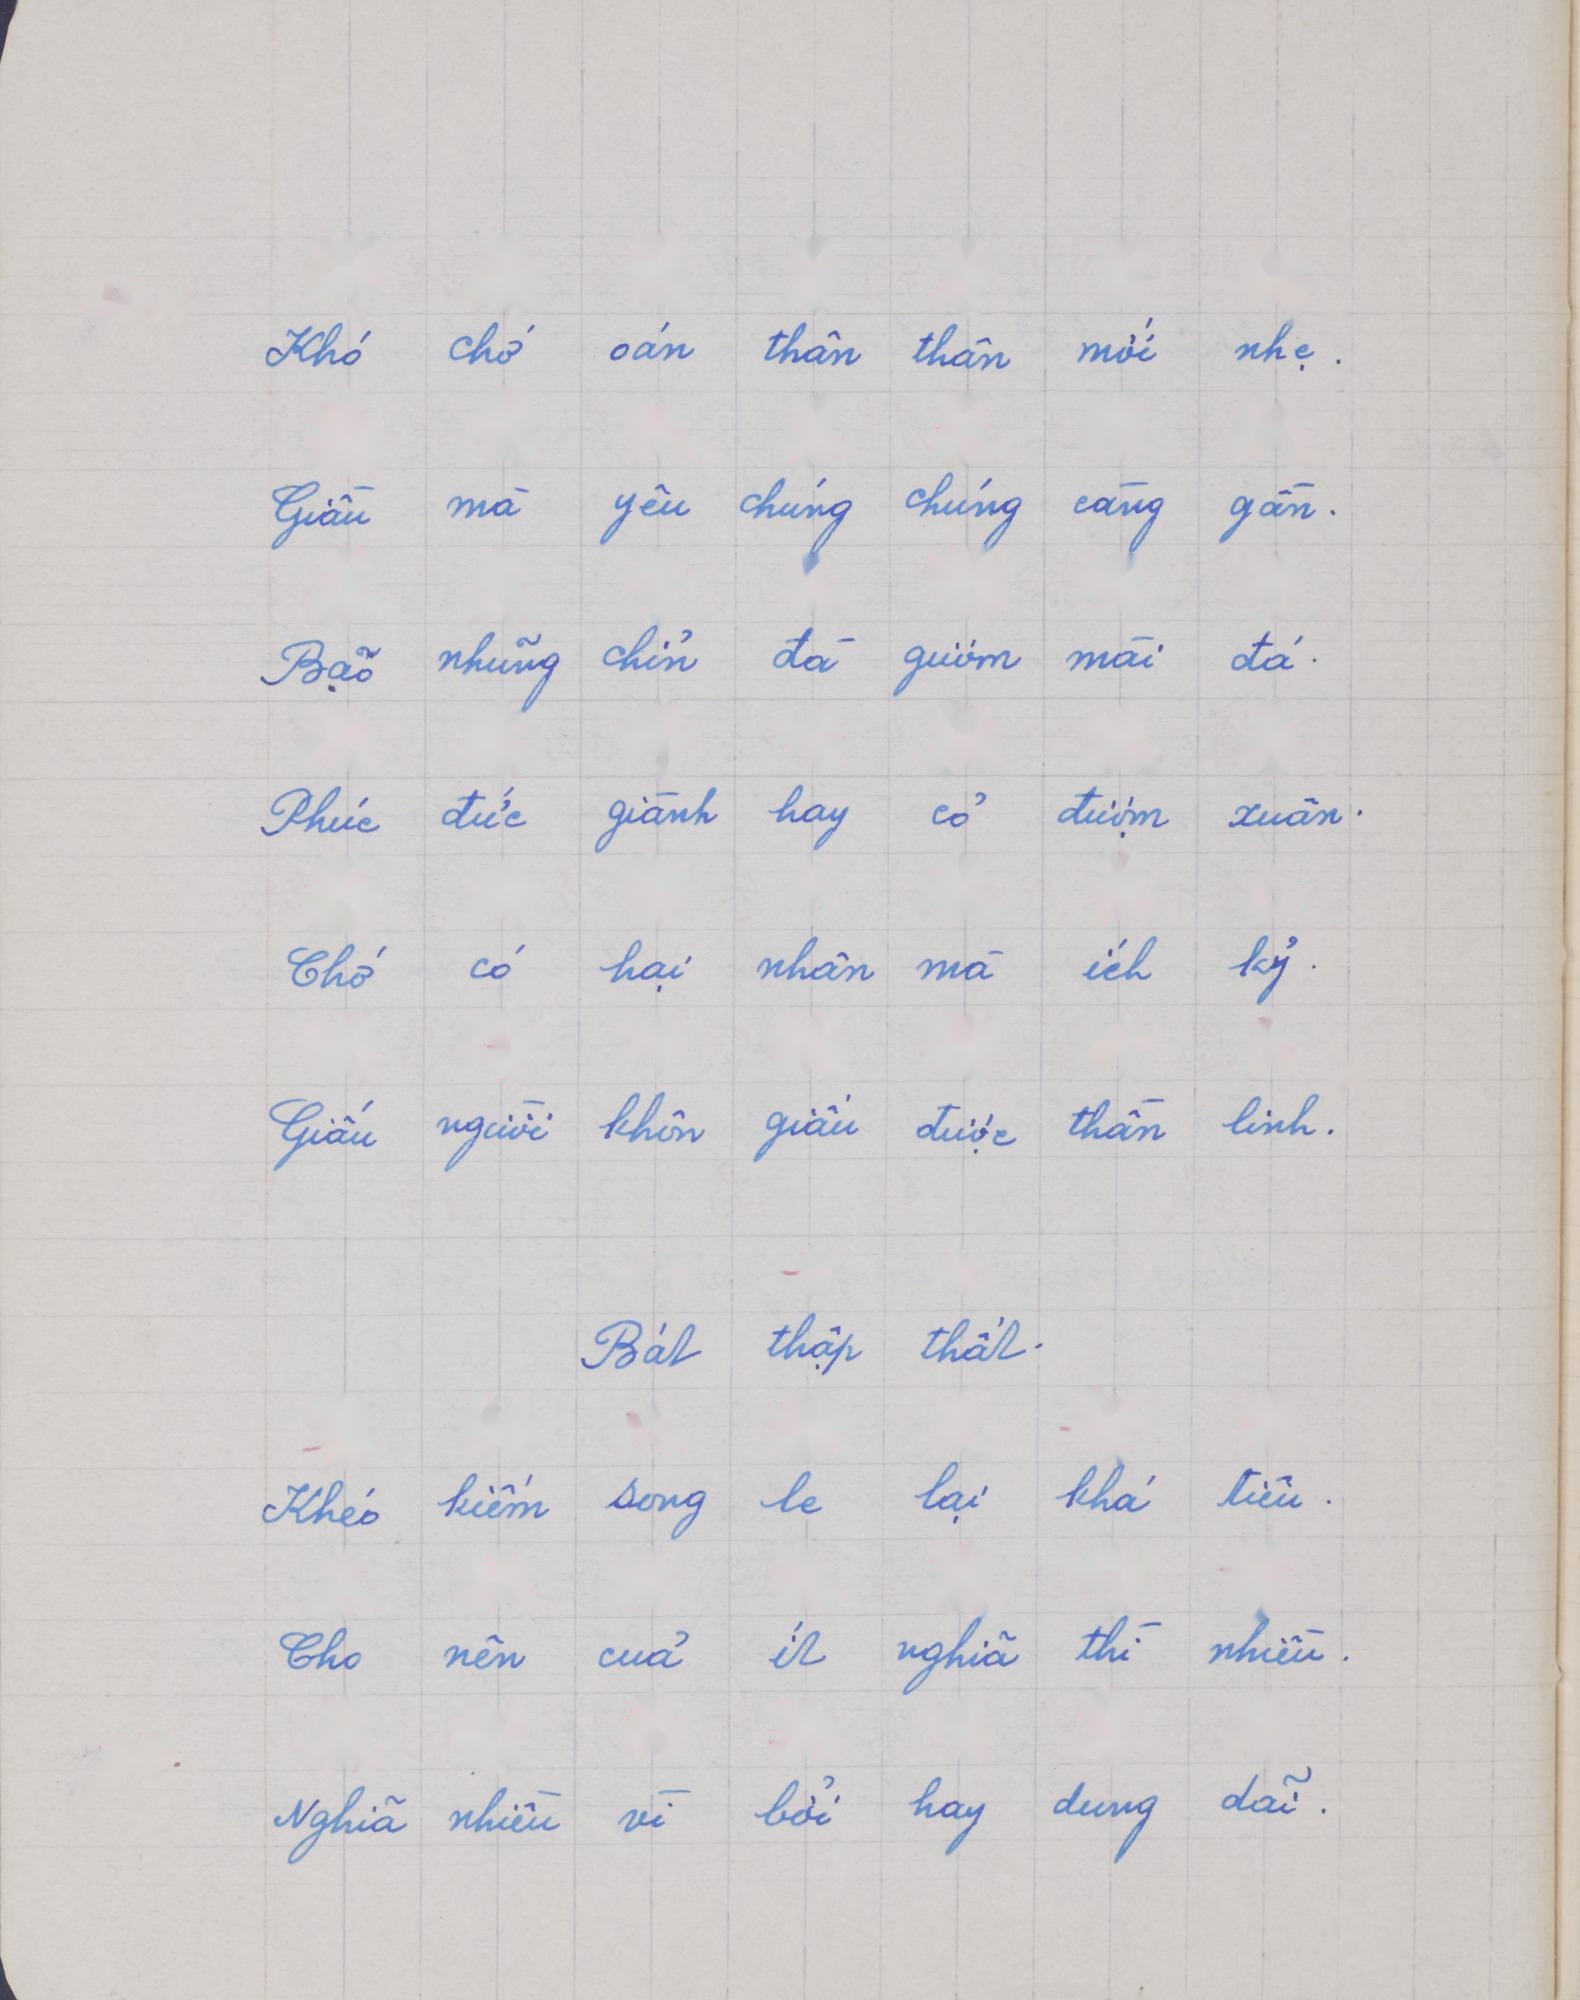 Khó chớ oán thân thân mới nhẹ.
Giầu mà yêu chúng chúng càng gần.
Bạo những chỉn đà gươm mài đá.
Phúc đức giành hay cỏ đượm xuân.
Chớ có hại nhân mà ích kỷ.
Giấu người khôn giấu được thần linh.
Bát thập thất.
Khéo kiếm song le lại khá tiêu.
Cho nên của ít nghĩa thì nhiều.
Nghĩa nhiều vì bởi hay dung dãi.